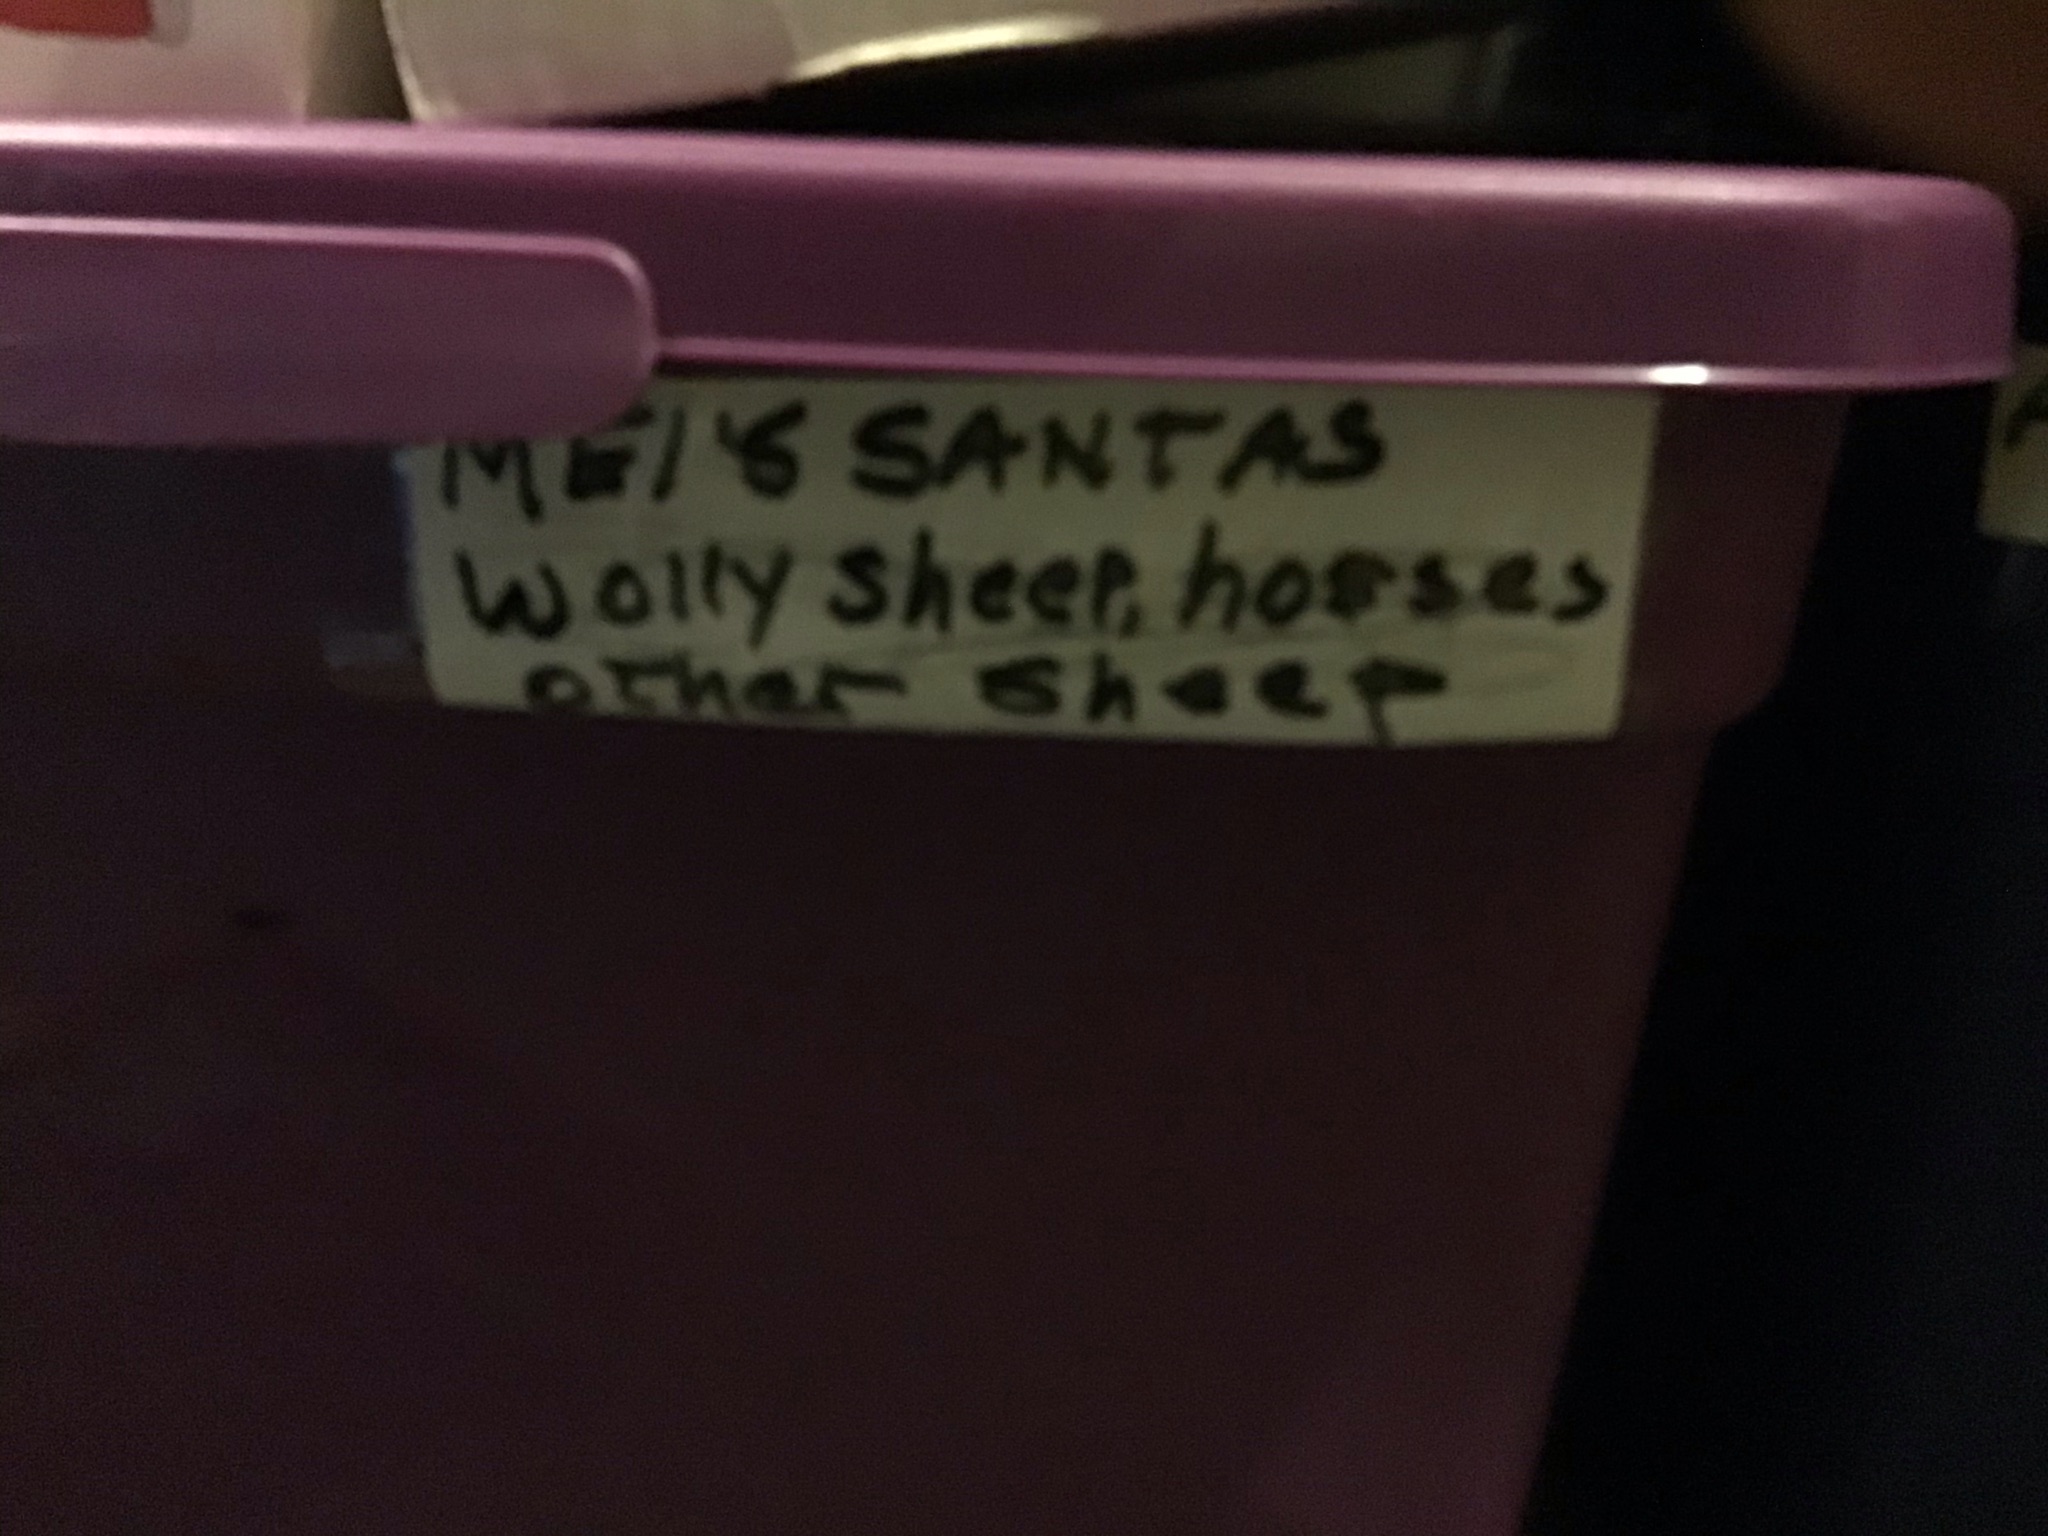 MEl'S SANTAS
Wolly sheep, horses
other sheep